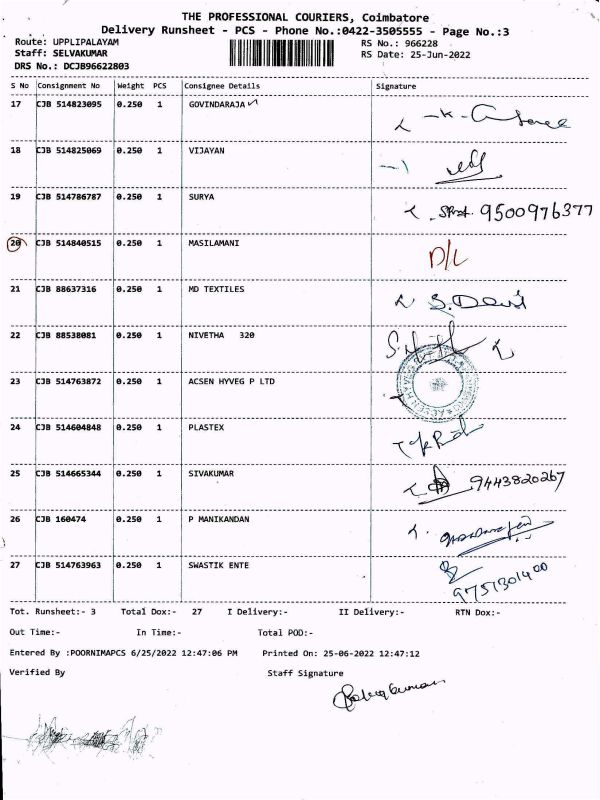 THE PROFESSIONAL COURIERS, Coimbatore
Delivery Runsheet - PCS - Phone No.:0422-3505555 - Page No.:3
Route: UPPLIPALAYAM RS No.: 966228
Staff: SELVAKUMAR RS Date: 25-Jun-2022
DRS No.: DCJB96622803
S No Consignment No Weight PCS Consignee Details Signature
17 CJB 514823095 0.250 1 GOVINDARAJA
18 CJB 514825069 0.250 1 VIJAYAN
19 CJB 514786787 0.250 1 SURYA 9500976377
20 CJB 514840515 0.250 1 MASILAMANI D/L
21 CJB 88637316 0.250 1 MD TEXTILES S.Devi
22 CJB 88538081 0.250 1 NIVETHA 320
23 CJB 514763872 0.250 1 ACSEN HYVEG P LTD
24 CJB 514604848 0.250 1 PLASTEX
25 CJB 514665344 0.250 1 SIVAKUMAR 9443820267
26 CJB 160474 0.250 1 P MANIKANDAN
27 CJB 514763963 0.250 1 SWASTIK ENTE 9751301400
Tot. Runsheet:- 3 Total Dox:- 27 I Delivery:- II Delivery:- RTN Dox:-
Out Time:- In Time:- Total POD:-
Entered By :POORNIMAPCS 6/25/2022 12:47:06 PM Printed On: 25-06-2022 12:47:12
Verified By Staff Signature